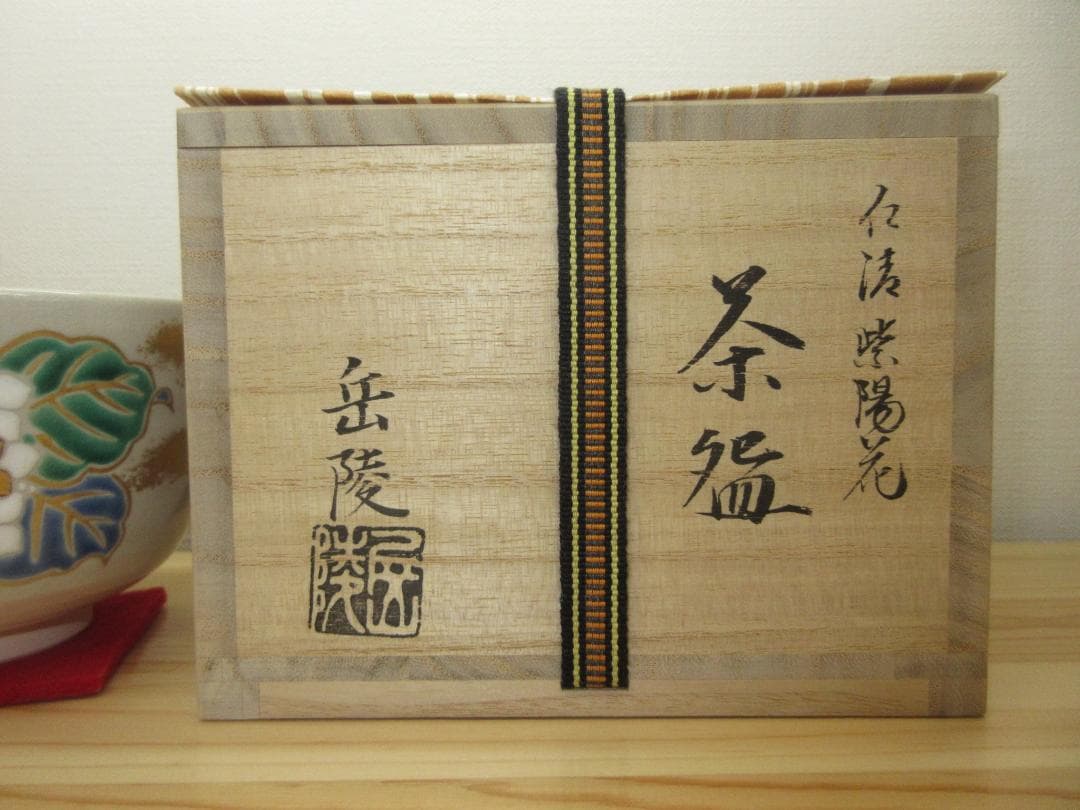 仁清 紫陽花
茶盌
岳陵
岳陵